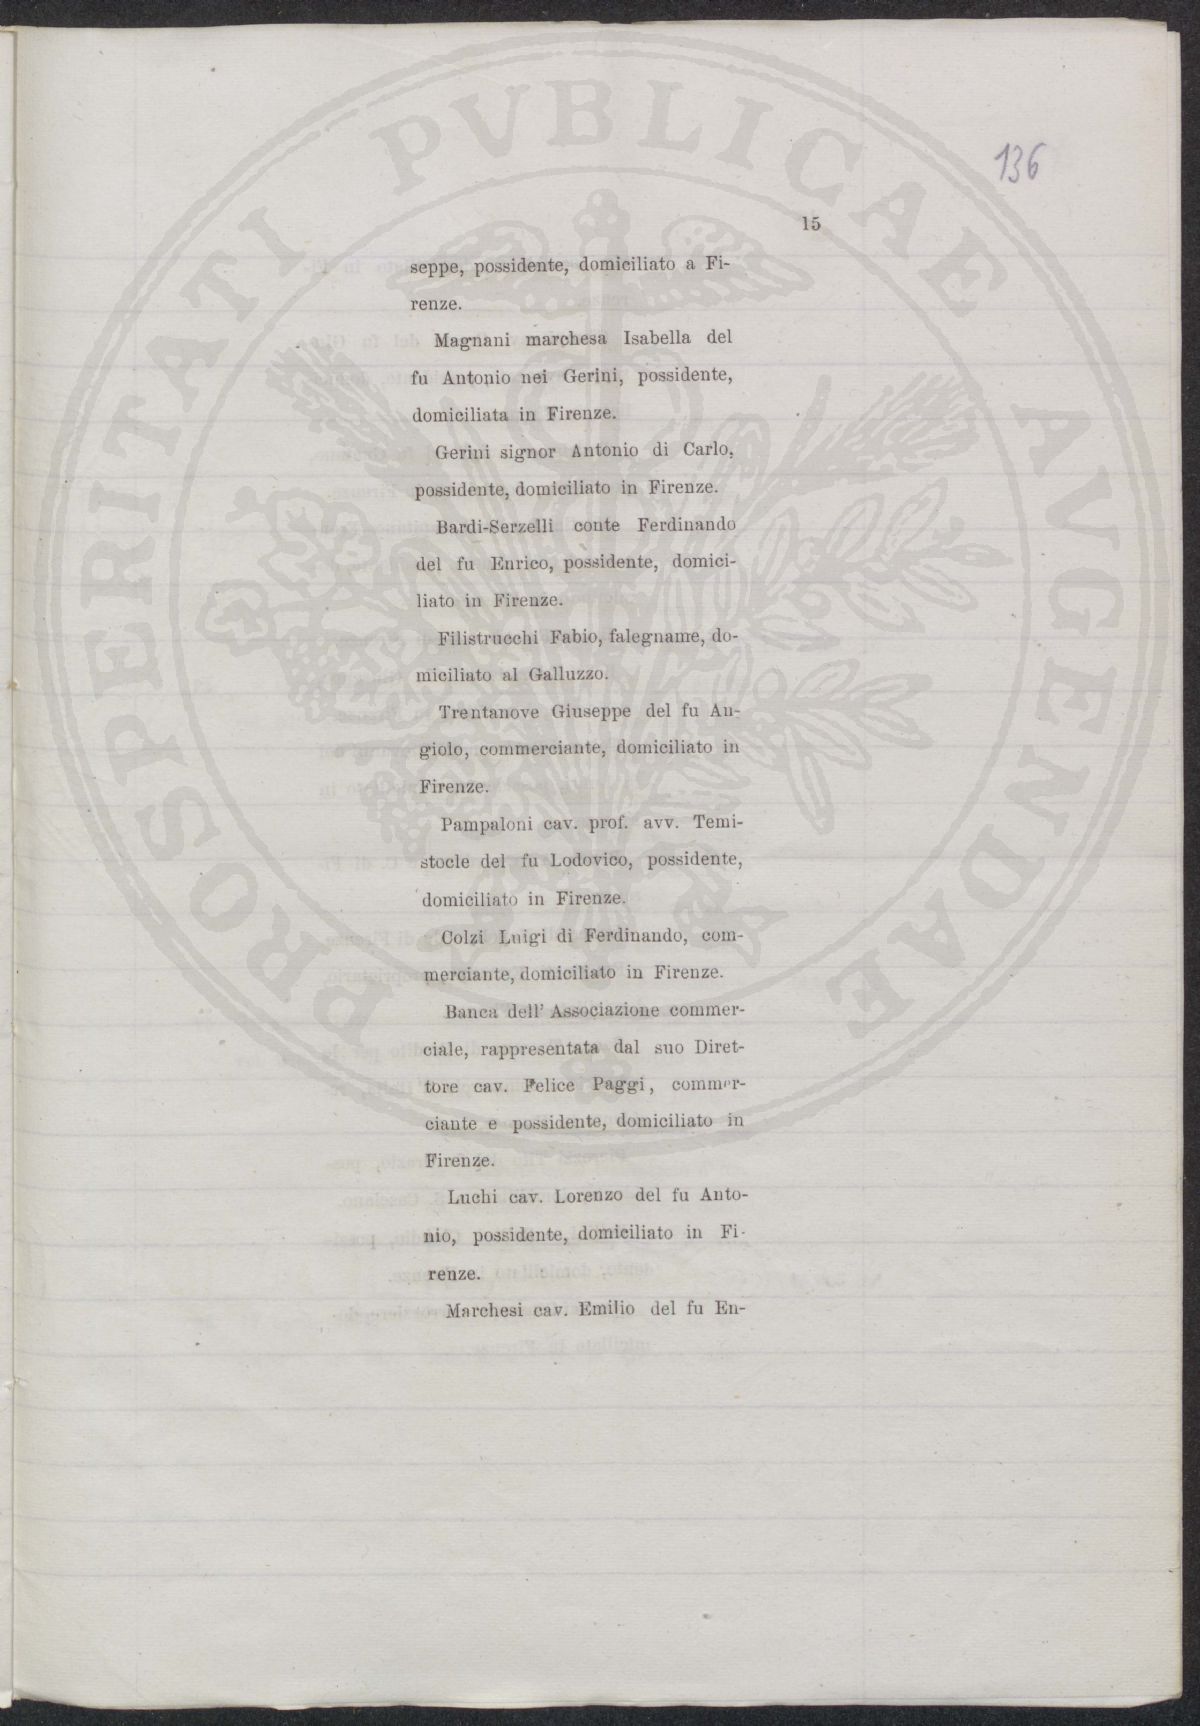 136
15
seppe, possidente, domiciliato a Fi-
renze.
Magnani marchesa Isabella del
fu Antonio nei Gerini, possidente,
domiciliata in Firenze.
Gerini signor Antonio di Carlo,
possidente, domiciliato in Firenze.
Bardi-Serzelli conte Ferdinando
del fu Enrico, possidente, domici-
liato in Firenze.
Filistrucchi Fabio, falegname, do-
miciliato al Galluzzo.
Trentanove Giuseppe del fu An-
giolo, commerciante, domiciliato in
Firenze.
Pampaloni cav. prof. avv. Temi-
stocle del fu Lodovico, possidente,
domiciliato in Firenze.
Colzi Luigi di Ferdinando, com-
merciante, domiciliato in Firenze.
Banca dell' Associazione commer-
ciale, rappresentata dal suo Diret-
tore cav. Felice Paggi, commer-
ciante e possidente, domiciliato in
Firenze.
Luchi cav. Lorenzo del fu Anto-
nio, possidente, domiciliato in Fi-
renze.
Marchesi cav. Emilio del fu En-
PROSPERITATI PVBLICAE AVGENDAE